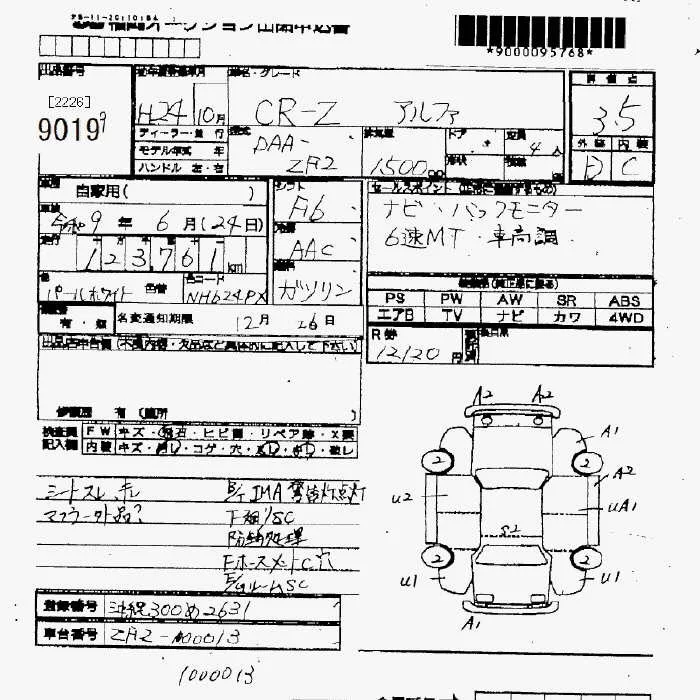 *9000095768*
出品番号
[2226]
9019 9
H24 10月
車名・グレード
CR-Z アルファ
評価点
3.5
外装 内装
D C
ディーラー・並行
モデル年式 年
ハンドル 左・右
型式
DAA-
ZF2
排気量
1500cc
ドア
形状
定員
4人
自家用( )
車検
令和9年6月(24日)
走行
123,761km
シフト
F6
冷房
AAC
燃料
ガソリン
セールスポイント
ナビ・バックモニター
6速MT・車高調
色
パールホワイト
色替
色コード
NH624PX
PS PW AW SR ABS
エアB TV ナビ カワ 4WD
有・無
名変通知期限
12月26日
R券
12120円
出品店申告欄(不具合内容・欠品など具体的に記入して下さい)
修復歴 有(箇所 )
検査員記入欄
FW キズ・飛石・ヒビ割・リペア跡・X要
内装 キズ・コゲ・穴
シートスレ
マフラー外品?
IMA警告灯点灯
下廻りSC
防錆処理
SC
A2 A2
A1
2 2
A2
U2
UA1
S2
2 2
U1 U1
A1
登録番号 沖縄300め2631
車台番号 ZF2-1000013
1000013